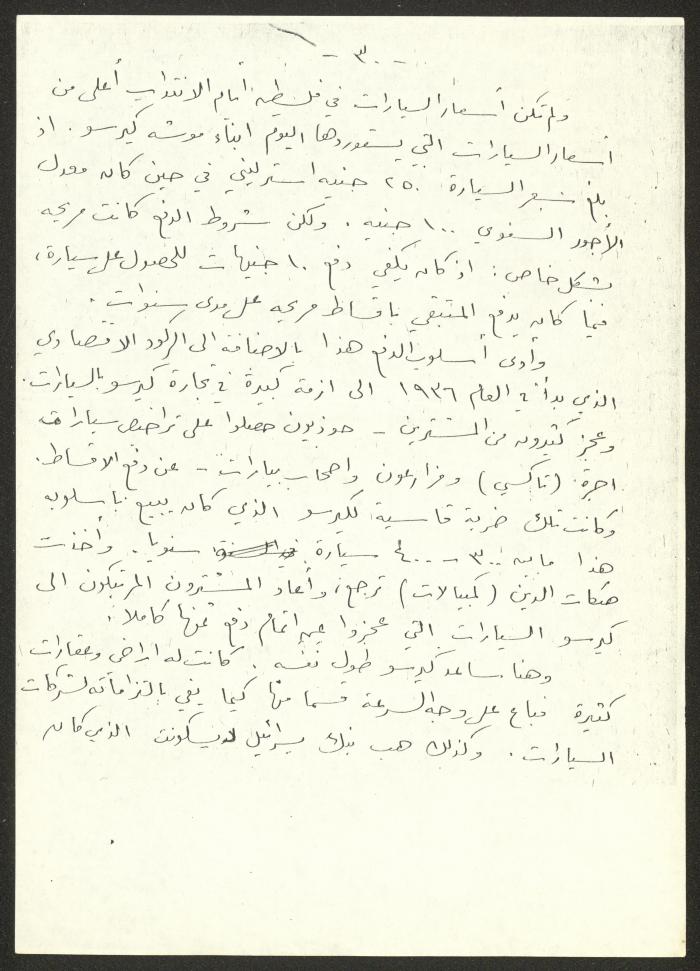 - ٣٠ -
ولم تكن أسعار السيارات في فلسطين أيام الانتداب أعلى من
أسعار السيارات التي يستوردها اليوم ابناء موشه كيرسو. اذ
بلغ سعر السيارة ٢٥٠ جنيه استرليني في حين كان معدل
الأجور السنوي ١٠٠ جنيه. ولكن شروط الدفع كانت مريحه
بشكل خاص: اذ كان يكفي دفع ١٠ جنيهات للحصول على سيارة،
فيما كان يدفع المتبقي باقساط مريحه على مدى سنوات.
وأدى أسلوب الدفع هذا بالاضافة الى الركود الاقتصادي
الذي بدأ في العام ١٩٣٦ الى ازمة كبيرة في تجارة كيرسو بالسيارات.
وعجز كثيرون من المشترين - حوذيون حصلوا على تراخيص سيارات
اجرة (تاكسي) ومزارعون واصحاب بيارات - عن دفع الاقساط.
وكانت تلك ضربة قاسية لكيرسو الذي كان يبيع باسلوبه
هذا ما بين ٣٠٠ - ٤٠٠ سيارة سنويا. وأخذت
صكات الدين (كمبيالات) ترجع، وأعاد المشترون المرتبكون الى
كيرسو السيارات التي عجزوا عن اتمام دفع ثمنها كاملا.
وهنا ساعد كيرسو طول نفسه. كانت له اراض وعقارات
كثيرة فباع على وجه السرعة قسما منها كيما يفي بالتزاماته لشركات
السيارات. وكذلك هب بنك يسرائيل ديسكونت الذي كان